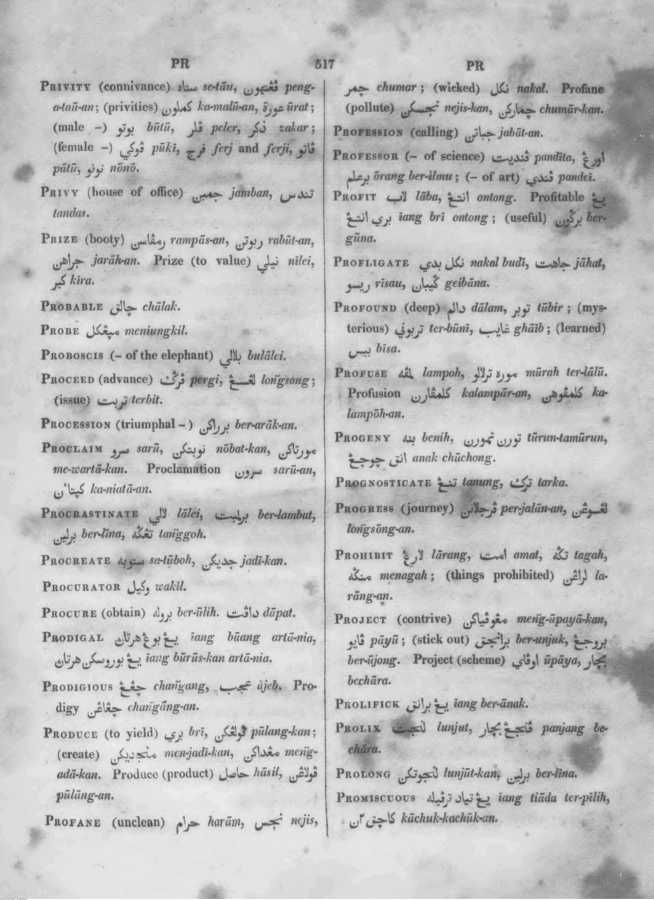 PR
517
PR
PRIVITY (connivance) ستاد se-tān, peng-
a-taū-an; (privities) كملون ka-malū-an, عورة ūrat;
(male –) بوتو būtū, قلر peler, ذكر zakar;
(female –) ڤوكي pūkī, فرج ferj and ferji,
pūtū, نونو nōnō.
PRIVY (house of office) جمبن jamban, تندس
tandas.
PRIZE (booty) رمڤاسن rampās-an, ربوتن rabūt-an,
جراهن jarāh-an. Prize (to value) نيلي nilei,
كير kira.
PROBABLE چالق chālak.
PROBE meniungkil.
PROBOSCIS (– of the elephant) بلالي bulālei.
PROCEED (advance) ڤرگ pergi, لڠسڠ longsong;
(issue) تربت terbit.
PROCESSION (triumphal –) برراكن ber-arāk-an.
PROCLAIM سرو sarū, نوبتكن nōbat-kan,
me-wartā-kan. Proclamation سرون sarū-an,
ka-niatā-an.
PROCRASTINATE لالي lālei, برلمبت ber-lambat,
برلين ber-līna, تڠگه tanggoh.
PROCREATE sa-tūboh, جديكن jadī-kan.
PROCURATOR وكيل wakil.
PROCURE (obtain) بروله ber-ūlih. داڤت dāpat.
PRODIGAL يڠ بوڠ هرتان iang būang artā-nia,
يڠ بوروسكن هرتان iang būrūs-kan artā-nia.
PRODIGIOUS چڠڠ changang, عجب ājeb. Pro-
digy چڠاڠن changāng-an.
PRODUCE (to yield) بري brī, ڤولڠكن pūlang-kan;
(create) منجديكن men-jadī-kan, مڠداكن meng-
adā-kan. Produce (product) حاصل hāsil, ڤولاڠن
pūlāng-an.
PROFANE (unclean) حرام harām, نجس nejis,
چمر chumar; (wicked) نكل nakal. Profane
(pollute) نجسكن nejis-kan, چماركن chumār-kan.
PROFESSION (calling) جباتن jabāt-an.
PROFESSOR (– of science) ڤنديت pandīta, اورڠ
برعلم ōrang ber-ilmu; (– of art) ڤندي pandei.
PROFIT لاب lāba, انتڠ ontong. Profitable يڠ
بري انتڠ iang brī ontong; (useful) برگون ber-
gūna.
PROFLIGATE نكل بدي nakal budī, جاهت jāhat,
ريسو rīsau, گيبان geibāna.
PROFOUND (deep) دالم dālam, توبر tūbir; (mys-
terious) تربوني ter-būnī, غايب ghāib; (learned)
بيس bīsa.
PROFUSE لمڤه lampoh, موره ترلالو mūrah ter-lālū.
Profusion كلمڤارن kalampār-an, كلمڤوهن ka-
lampōh-an.
PROGENY بنه benih, تورن تمورن tūrun-tamūrun,
انق چوچڠ anak chūchong.
PROGNOSTICATE تنڠ tanung, ترك tarka.
PROGRESS (journey) ڤرجلانن per-jalān-an, لڠسوڠن
longsōng-an.
PROHIBIT لارڠ lārang, امت amat, تگه tagah,
منگه menagah; (things prohibited) لراڠن la-
rāng-an.
PROJECT (contrive) مڠوڤياكن meng-ūpayā-kan,
ڤايو pāyū; (stick out) برانجق ber-unjuk, بروجڠ
ber-ūjong. Project (scheme) اوڤاي ūpāya, بچار
bechāra.
PROLIFICK يڠ برانق iang ber-ānak.
PROLIX لنجت lunjut, ڤنجڠ بچار panjang be-
chāra.
PROLONG لنجوتكن lunjūt-kan, برلين ber-līna.
PROMISCUOUS يڠ تياد ترڤيله iang tiāda ter-pīlih,
كاچق٢ن kūchuk-kachūk-an.